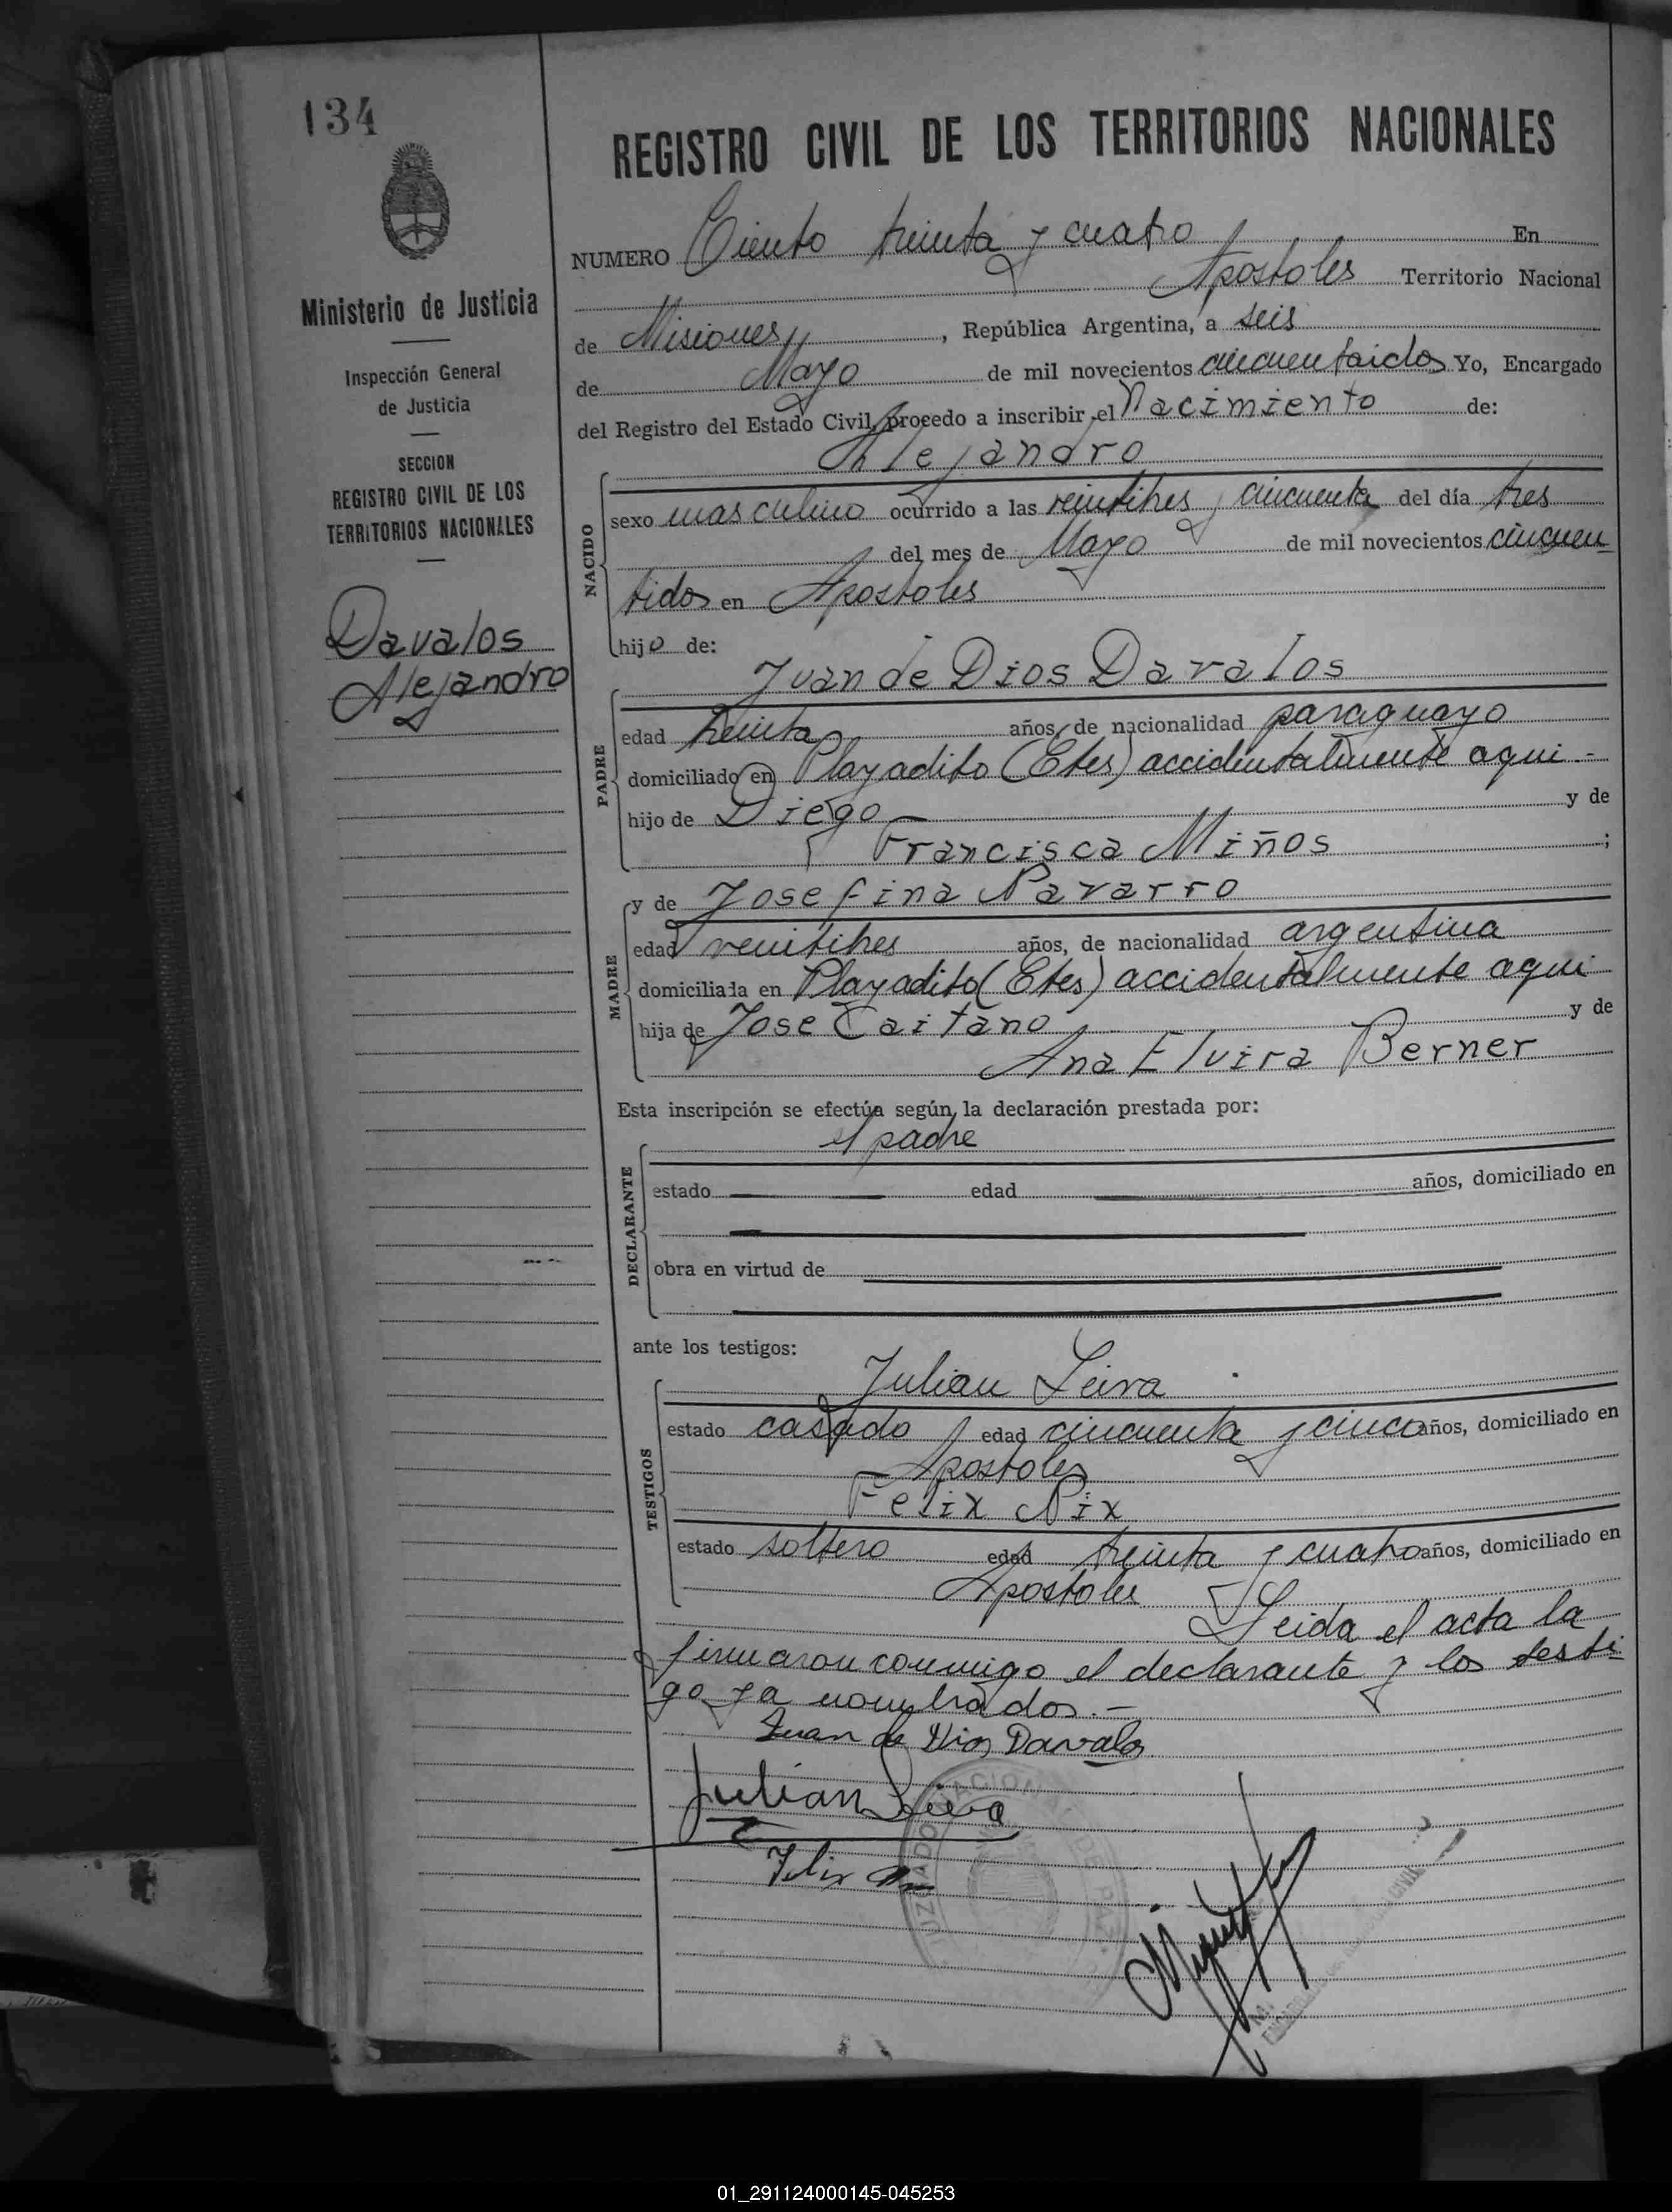 134
REGISTRO CIVIL DE LOS TERRITORIOS NACIONALES
NUMERO Ciento treinta y cuatro En
Apostoles Territorio Nacional
de Misiones, República Argentina, a seis
de Mayo de mil novecientos cincuentaidos Yo, Encargado
del Registro del Estado Civil, procedo a inscribir el Nacimiento de:
Alejandro
Ministerio de Justicia
Inspección General
de Justicia
SECCION
REGISTRO CIVIL DE LOS
TERRITORIOS NACIONALES
Davalos
Alejandro
NACIDO
sexo masculino ocurrido a las veintitres y cincuenta del día tres
del mes de Mayo de mil novecientos cincuen
tidos en Apostoles
hijo de:
Juan de Dios Davalos
PADRE
edad treinta años, de nacionalidad paraguayo
domiciliado en Playadito (Etes) accidentalmente aqui.-
hijo de Diego y de
Francisca Miños;
y de Josefina Navarro
MADRE
edad veintitres años, de nacionalidad argentina
domiciliada en Playadito (Etes) accidentalmente aqui
hija de Jose Caitano y de
Ana Elvira Berner
Esta inscripción se efectúa según la declaración prestada por:
el padre
DECLARANTE
estado edad años, domiciliado en
obra en virtud de
ante los testigos:
Julian Leiva
TESTIGOS
estado casado edad cincuenta y cinco años, domiciliado en
Apostoles
Felix Nix
estado soltero edad treinta y cuatro años, domiciliado en
Apostoles Leida el acta la
firmaron conmigo el declarante y los testi-
go ya nombrados.-
Juan de Dios Davalos
Julian Leiva
Felix
JUZGADO NACIONAL DE PAZ
01_291124000145-045253